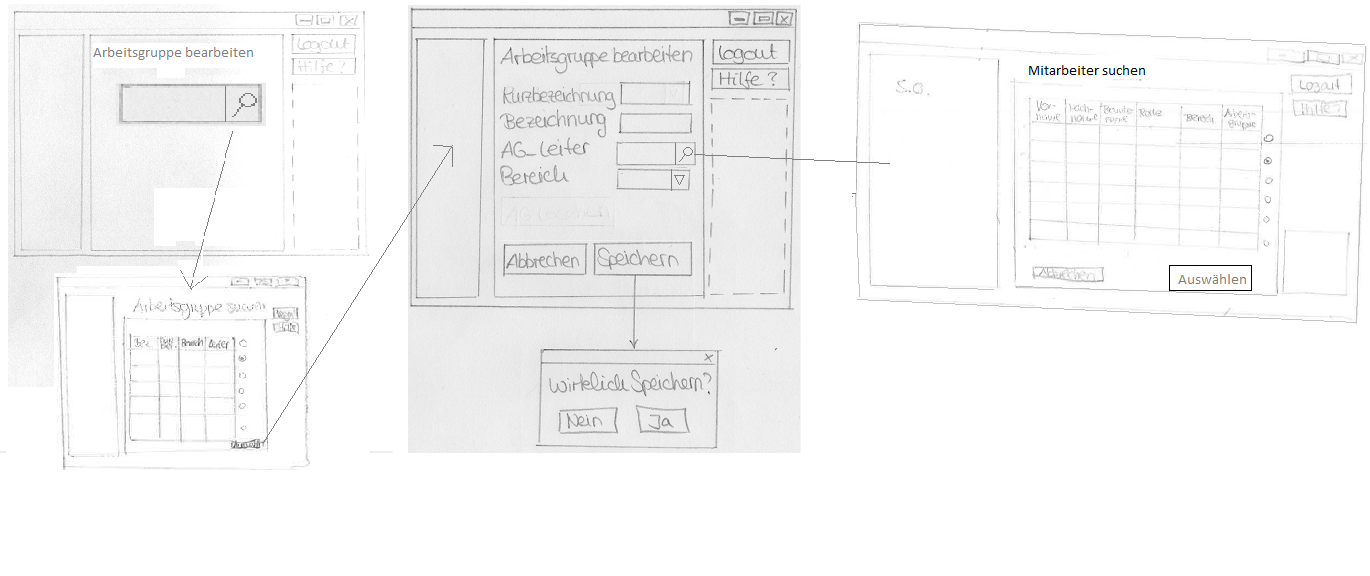 Arbeitsgruppe bearbeiten
Logout
Hilfe?
Arbeitsgruppe suchen
Logout
Bereich
Leiter
Arbeitsgruppe bearbeiten
Logout
Hilfe?
Kurzbezeichnung
Bezeichnung
AG_Leiter
Bereich
AG Löschen
Abbrechen
Speichern
Wirklich Speichern?
Nein
Ja
Mitarbeiter suchen
Logout
Hilfe?
s.o.
Vor-
name
Nach-
name
Benutzer
name
Rolle
Bereich
Arbeits-
gruppe
Abbrechen
Auswählen